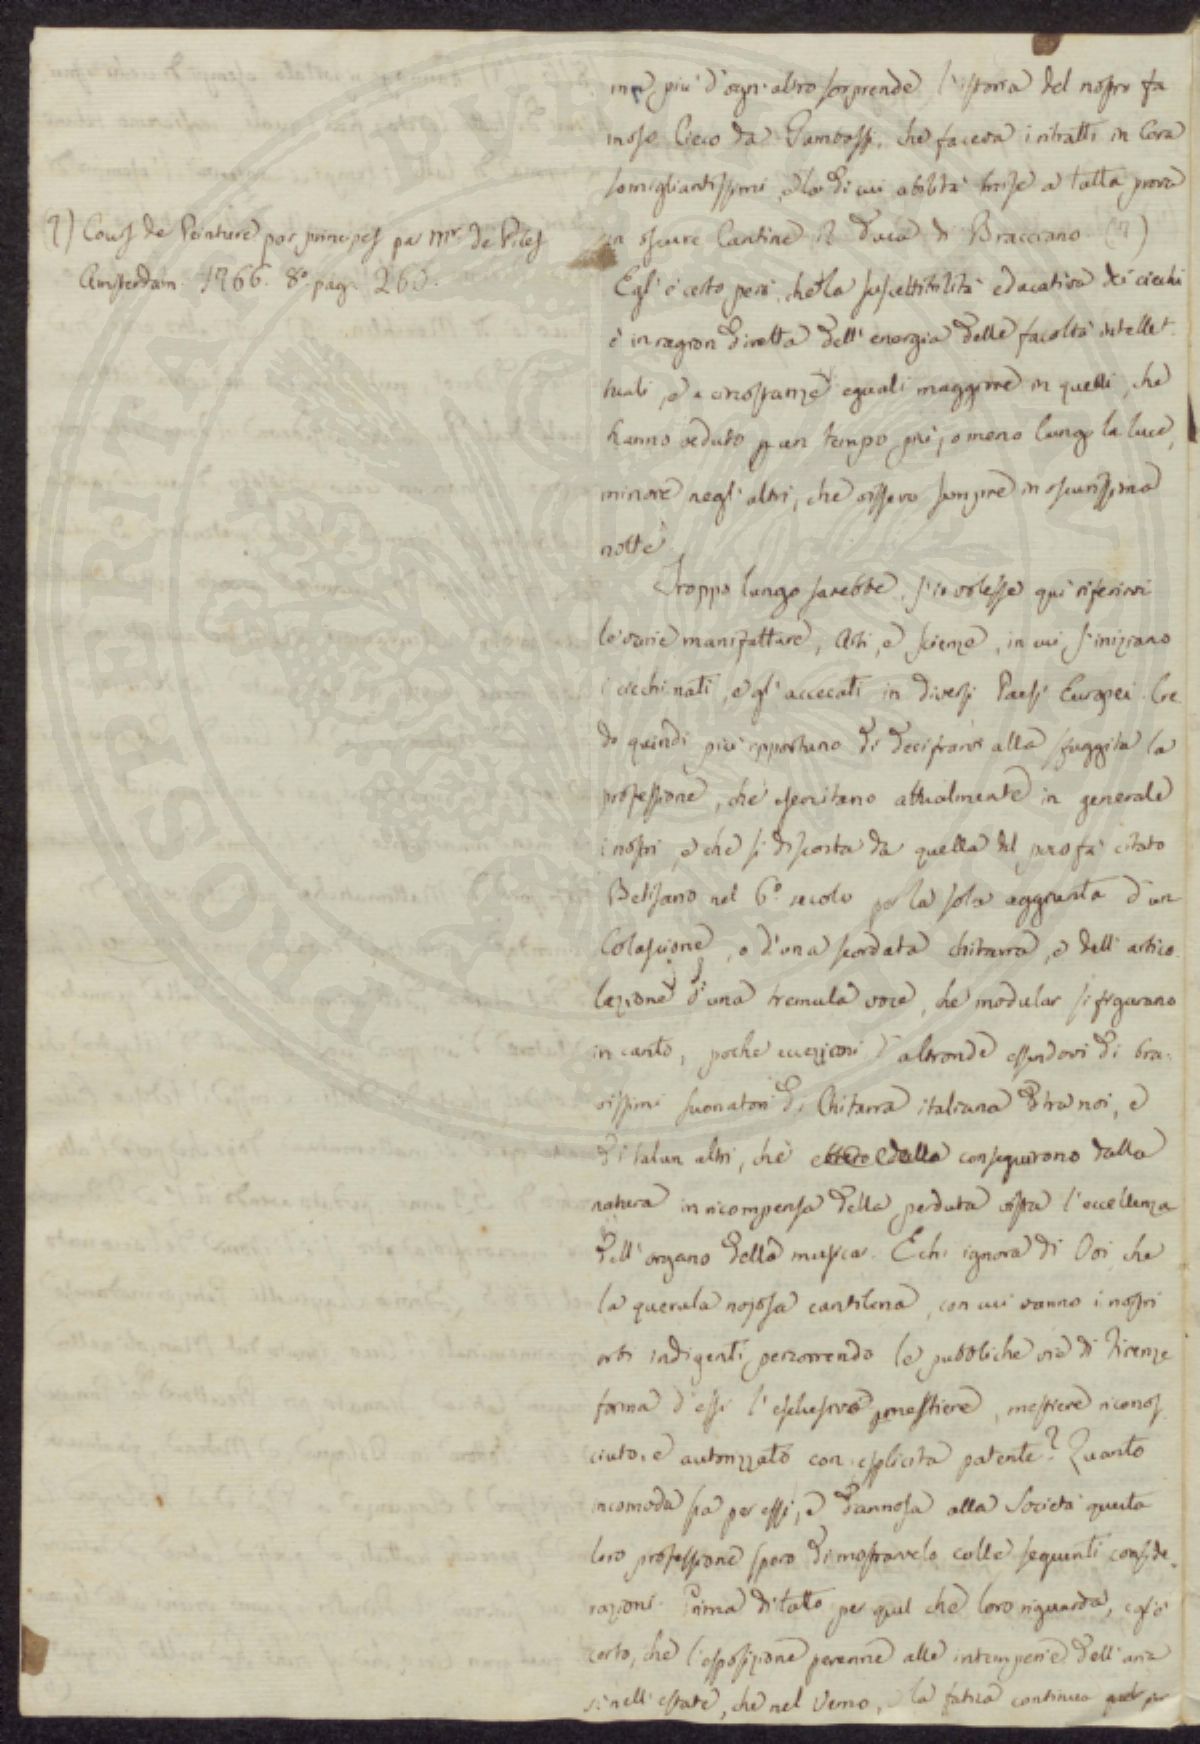 me, più d'ogn'altro sorprende l'istoria del nostro fa
moso Cieco da Gambassi, che faceva i ritratti in Cera
somigliantissimi, e la di cui abilità mise a tutta prova
in oscure Cantine il Duca di Bracciano (7)
7) Cours de Peinture par principes par Mr. de Piles
Amsterdam. 1766. 8.° pag.
Egl'è certo però, che la suscettibilità educativa dei ciechi
è in ragion diretta dell'energia delle facoltà intellet-
tuali, e a circostanze eguali maggiore in quelli, che
hanno veduto per un tempo più, o meno lungo la luce,
minore negl'altri, che vissero sempre in oscurissima
notte.
Troppo lungo sarebbe, s'io volesse qui riferirvi
le varie manifatture, Arti, e scienze, in cui s'iniziano
i ciechi nati, e gl'accecati in diversi Paesi Europei. Cre
do quindi più opportuno di decifrarvi alla sfuggita la
professione, che esercitano attualmente in generale
i nostri, e che si discosta da quella del poco fa citato
Belisario nel 6.° secolo per la sola aggiunta d'un
Colascione, o d'una scordata chitarra, e dell'artico-
lazione di una tremula voce, che modular si figurano
in canto, poche eccezioni d'altronde essendovi di bra-
vissimi suonatori di Chitarra italiana tra noi, e
di talun altri, che conseguirono dalla
natura in ricompensa della perduta vista l'eccellenza
dell'organo della musica. E chi ignora di Voi che
la querula nojosa cantilena, con cui vanno i nostri
orbi indigenti percorrendo le pubbliche vie di Firenze
forma d'essi l'esclusivo mestiere, mestiere ricono-
sciuto, e autorizzato con esplicita patente? Quanto
incomoda sia per essi, e dannosa alla Società questa
loro professione spero dimostrarvelo colle seguenti conside-
razioni. Prima di tutto per quel che loro riguarda, egl'è
certo, che l'esposizione perenne alle intemperie dell'aria
sì nell'estate, che nel Verno, la fatica continua